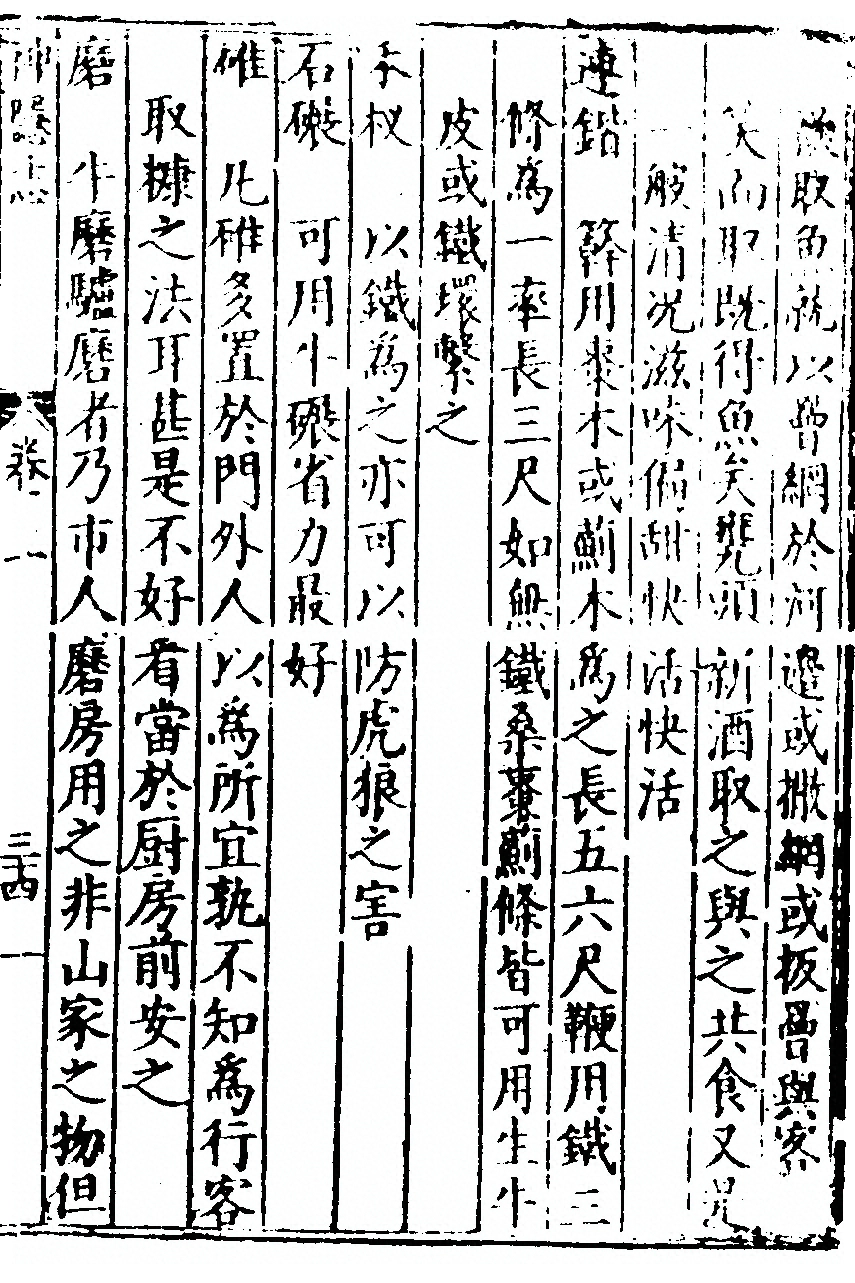 欲取魚就以罾網於河邊或撒網或扳罾與客
笑而取既得魚矣甕頭新酒取之與之共食又是
一般清况滋味偏甜快活快活
連鎝　簳用棗木或蘭木為之長五六尺鞭用鐵三
條為一率長三尺如無鐵桑棗蘭條皆可用生牛
皮或鐵環繫之
禾杈　以鐵為之亦可以防虎狼之害
石碾　可用牛碾省力最好
碓　凡碓多置於門外人以為所宜孰不知為行客
取糠之法耳甚是不好看當於厨房前安之
磨　牛磨驢磨者乃市人磨房用之非山家之物但
卷一
三十四